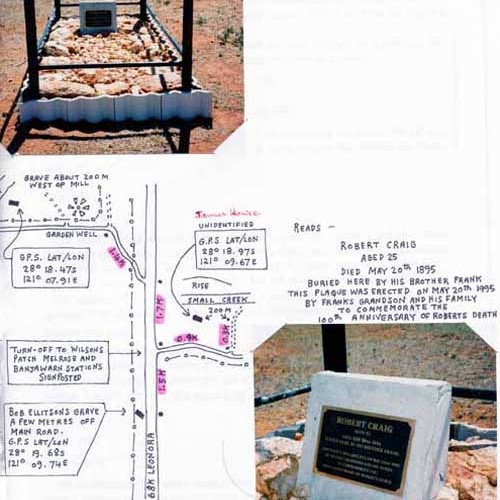 GRAVE ABOUT 200M
WEST OF MILL
GARDEN WELL
G.P.S. LAT/LON
28° 18.47S
121° 07.91E
UNIDENTIFIED
G.P.S LAT/LON
28° 18.97S
121° 09.67E
RISE
SMALL CREEK
200M
1.7K
0.4K
0.3K
1.5K
TURN-OFF TO WILSONS
PATCH MELROSE AND
BANJAWARN STATIONS
SIGNPOSTED
BOB ELLITSONS GRAVE
A FEW METRES OFF
MAIN ROAD.
G.P.S LAT/LON
28° 19.68S
121° 09.74E
68K LEONORA
READS –
ROBERT CRAIG
AGED 25
DIED MAY 20TH 1895
BURIED HERE BY HIS BROTHER FRANK
THIS PLAQUE WAS ERECTED ON MAY 20TH 1995
BY FRANKS GRANDSON AND HIS FAMILY
TO COMMEMORATE THE
100TH ANNIVERSARY OF ROBERTS DEATH
ROBERT CRAIG